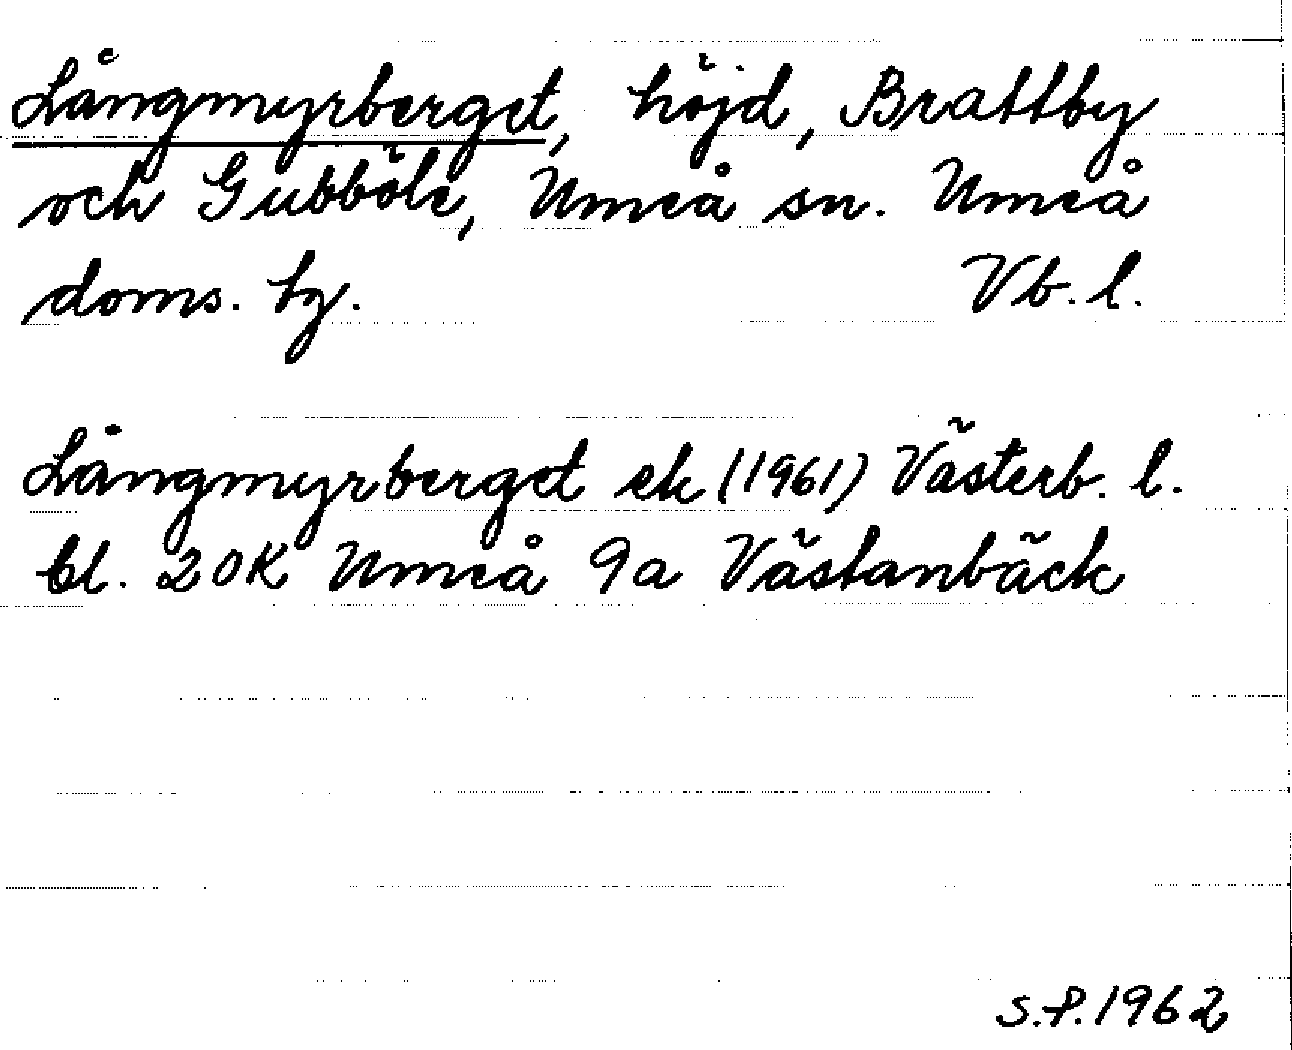 Långmyrberget, höjd, Brattby
och Gubböle, Umeå sn. Umeå
doms. tg. Vb. l.
Långmyrberget ek (1961) Västerb. l.
bl. 20K Umeå 9a Västanbäck
S.P. 1962